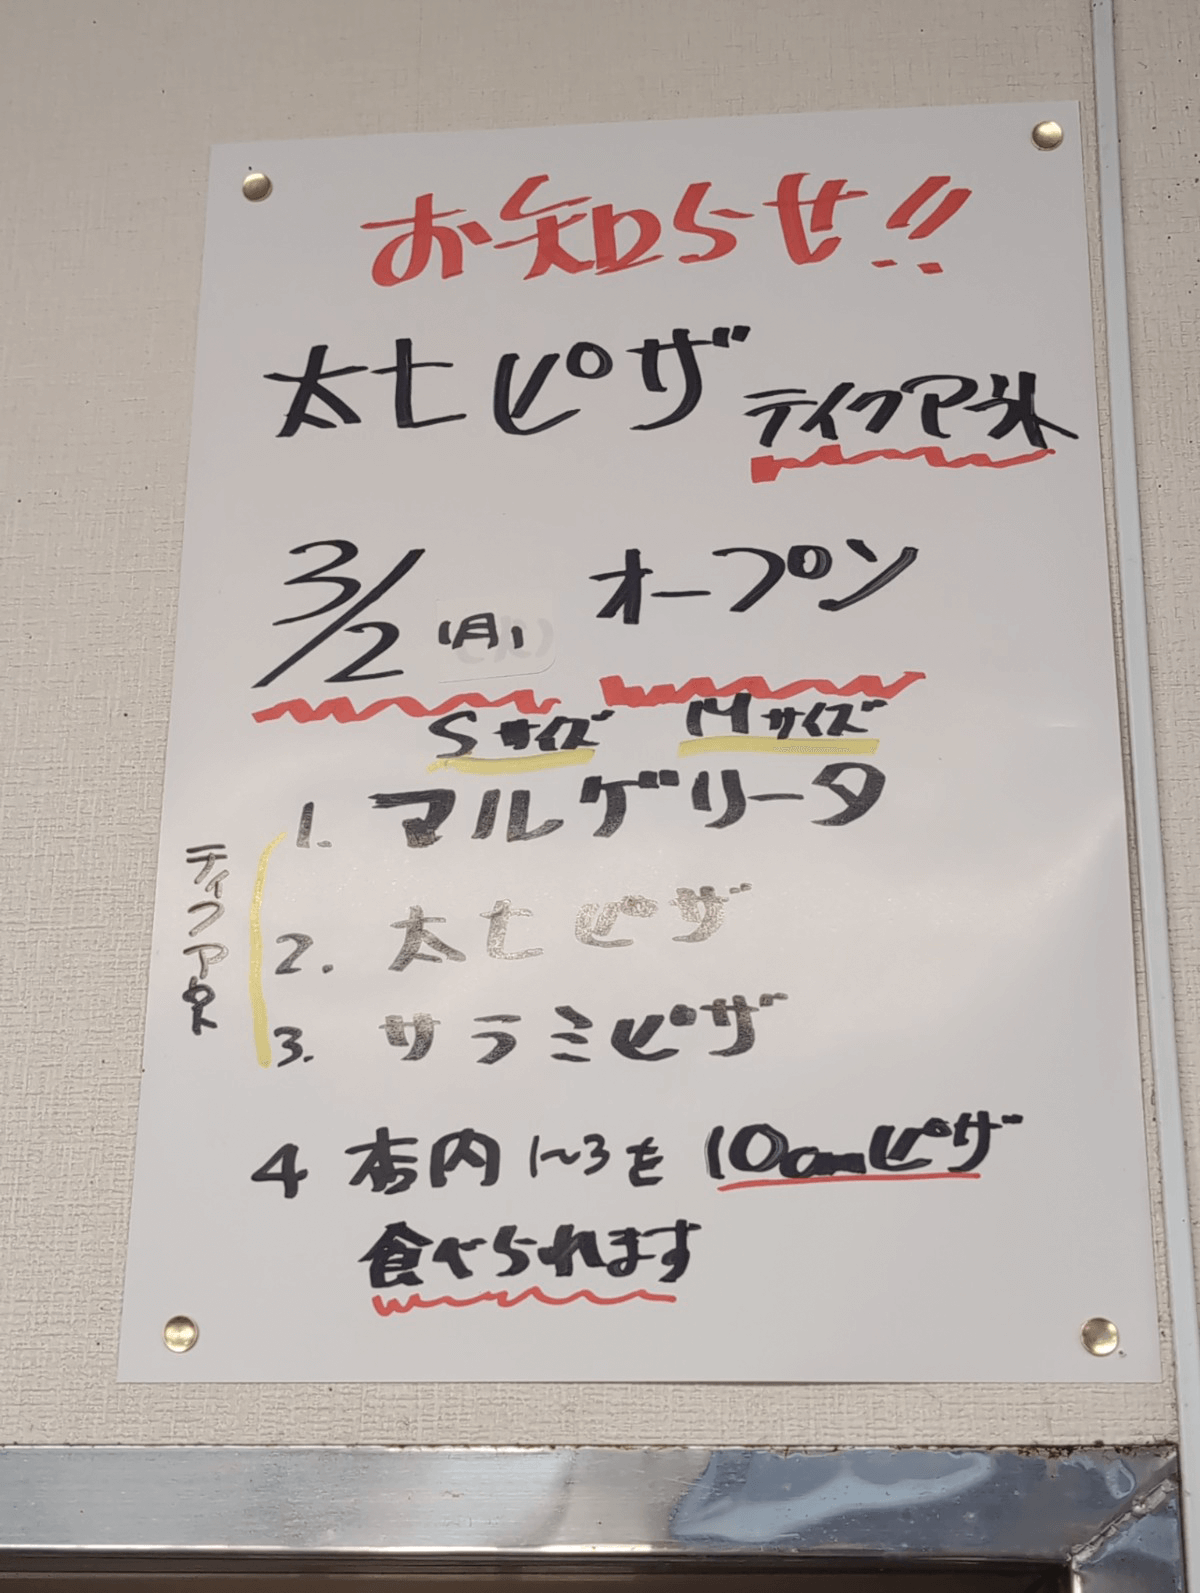 お知らせ!!
太七ピザ テイクアウト
3/2 (月) オープン
Sサイズ Mサイズ
テイクアウト
1. マルゲリータ
2. 太七ピザ
3. サラミピザ
4 店内 1〜3を 10cmピザ
食べられます